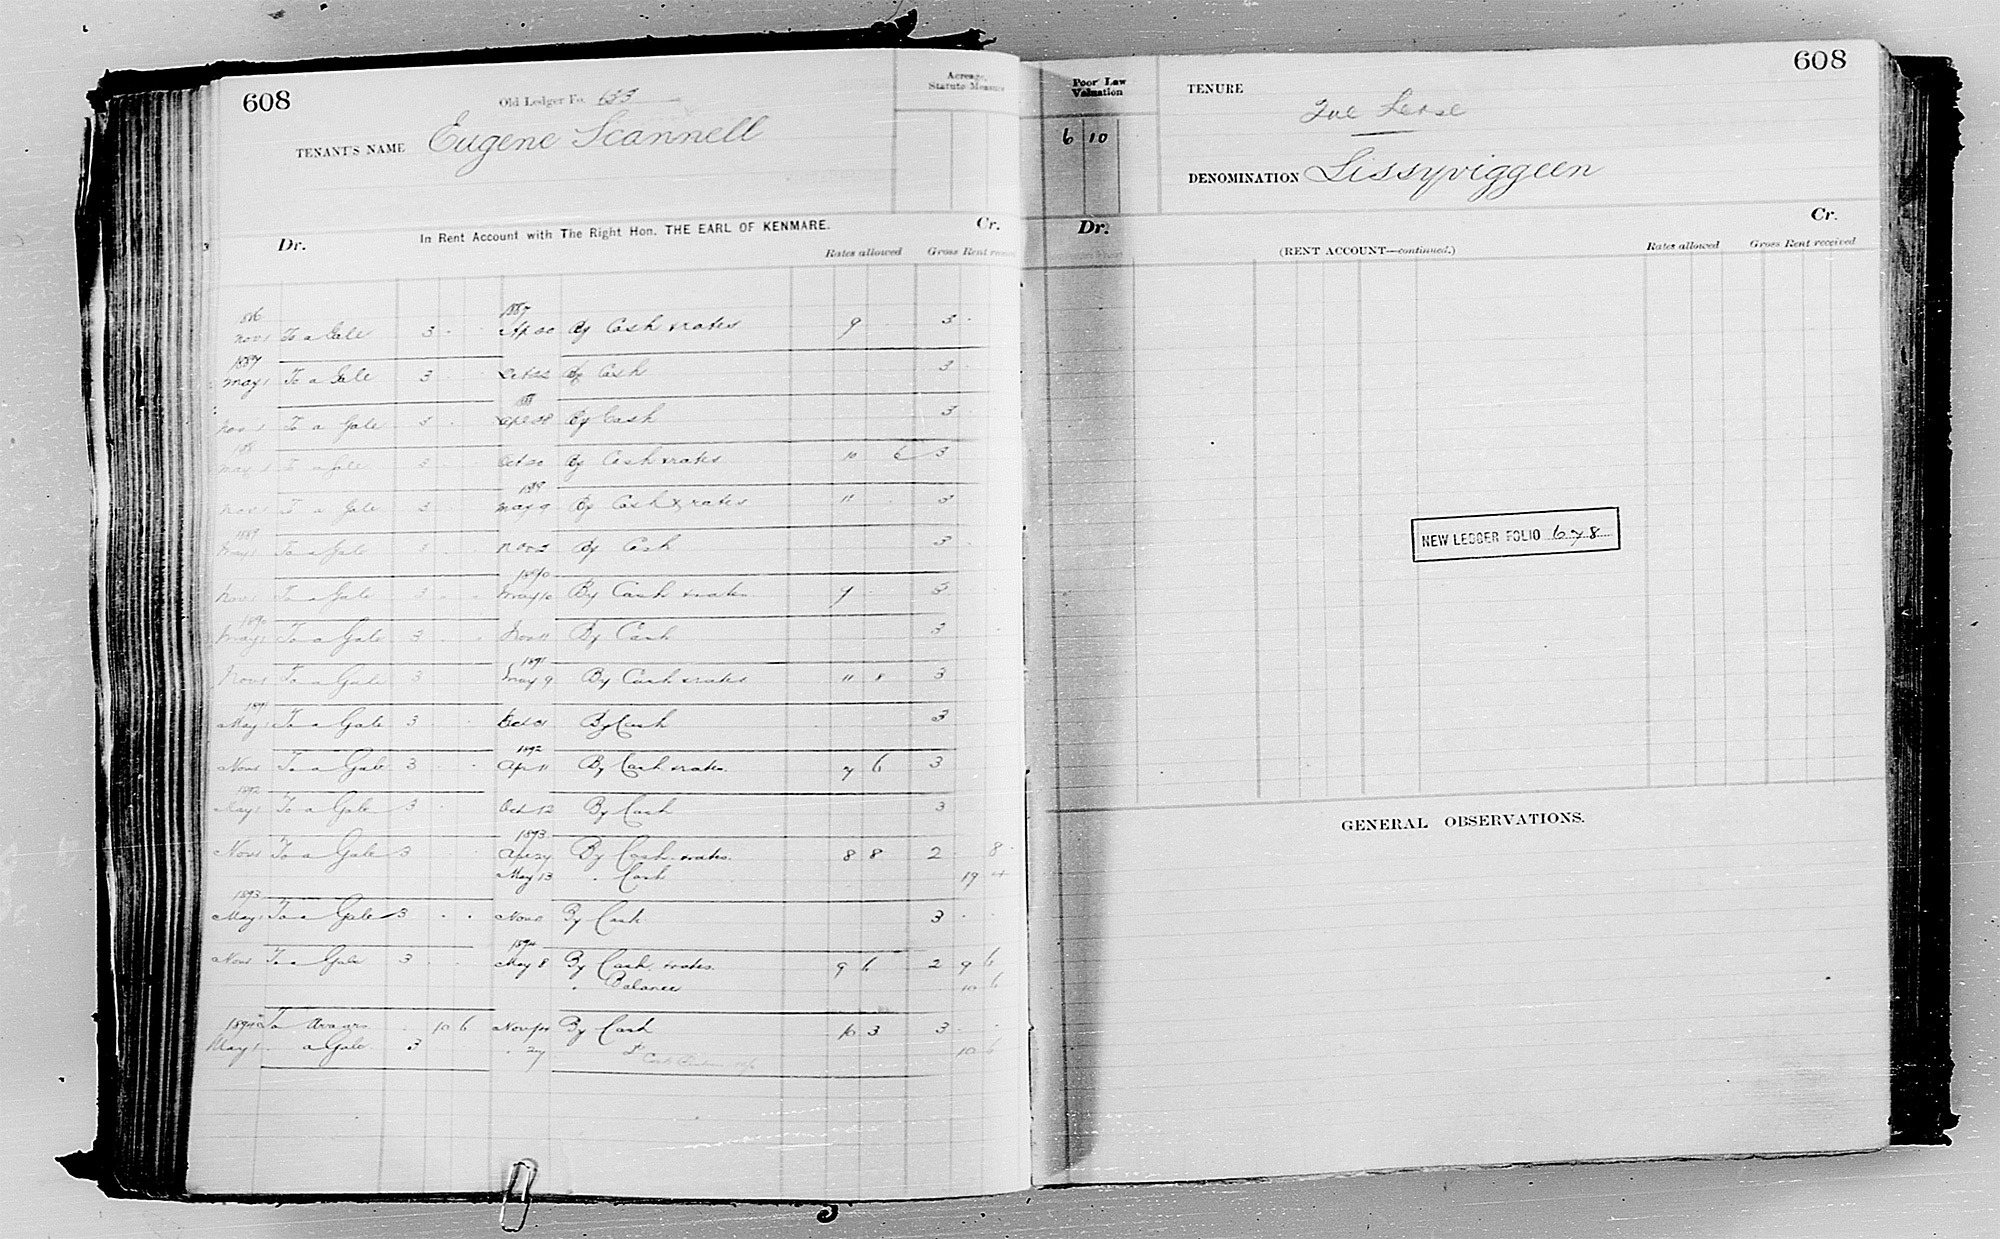 608
Old Ledger Fo. 633
Acreage, Statute Measure
TENANT'S NAME Eugene Scannell
In Rent Account with The Right Hon. THE EARL OF KENMARE.
Dr. Cr.
Rates allowed Gross Rent
Nov 1 To a Gale 3 1887 By Cash & rates 9 3
1887 May 1 To a Gale 3 By Cash 3
Nov 1 To a Gale 3 By Cash 3
May 1 To a Gale 3 Oct 20 By Cash & rates 10 6 3
Nov 1 To a Gale 3 1889 May 9 By Cash & rates 11 3
1889 May 1 To a Gale 3 Nov 2 By Cash 3
Nov 1 To a Gale 3 1890 May 10 By Cash & rates 9 3
1890 May 1 To a Gale 3 Nov 11 By Cash 3
Nov 1 To a Gale 3 1891 May 9 By Cash & rates 11 8 3
1891 May 1 To a Gale 3 Oct 21 By Cash 3
Nov 1 To a Gale 3 1892 Apr 11 By Cash & rates 7 6 3
1892 May 1 To a Gale 3 Oct 12 By Cash 3
Nov 1 To a Gale 3 1893 By Cash & rates 8 8 2 8
May 13 " Cash 19 4
1893 May 1 To a Gale 3 By Cash 3
Nov 1 To a Gale 3 1894 May 8 By Cash & rates 9 6 2 9 6
" Balance 10 6
1894 To Arrears 10 6 By Cash 10 3 3
May 1 a Gale 3 " 27 10 6
608
Poor Law Valuation
6 10
TENURE
Lease
DENOMINATION Lissyviggeen
Dr. Cr.
(RENT ACCOUNT—continued.)
Rates allowed Gross Rent received
NEW LEDGER FOLIO 678
GENERAL OBSERVATIONS.